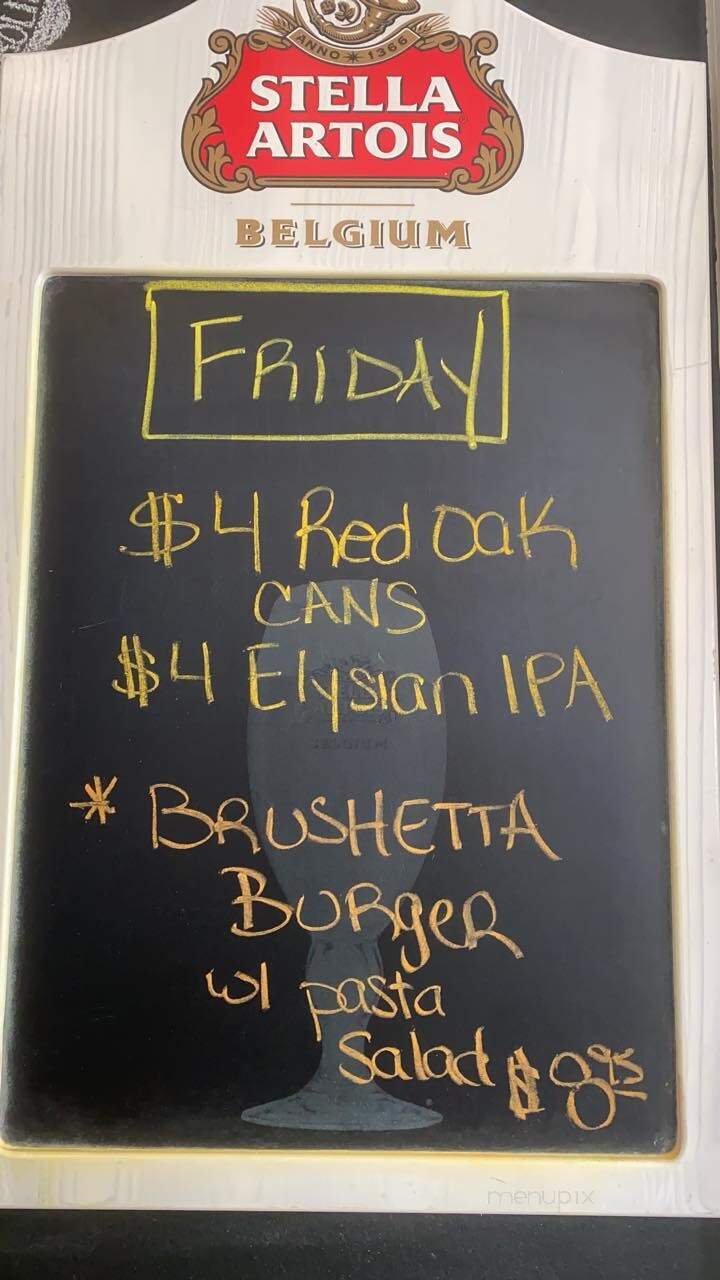 ANNO 1366
STELLA
ARTOIS
BELGIUM
FRIDAY
$4 Red Oak
CANS
$4 Elysian IPA
* BRUSHETTA
BURgeR
w/ pasta
Salad $8.95
menupix